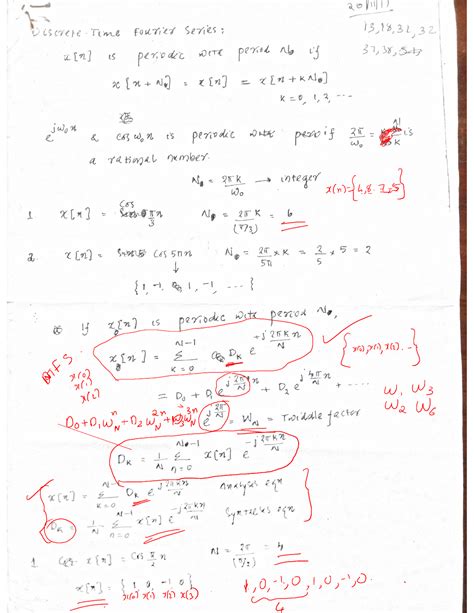 20/11/17
Discrete-Time Fourier Series:
13, 18, 31, 32
37, 38,
x[n] is periodic with period N₀ if
x[n + N₀] = x[n] = x[n + kN₀]
k = 0, 1, 2, ...
e^{jω₀n} & cos ω₀n is periodic with period if 2π/ω₀ = is
a rational number.
N₀ = 2πk/ω₀ → integer
1 x[n] = cos πn/3 N₀ = 2πk/(π/3) = 6
2 x[n] = cos 5πn N₀ = 2π/5π × k = 2/5 × 5 = 2
{1, -1, 1, -1, ...}
If x[n] is periodic with period N₀,
DTFS
x[n] = Σ_{k=0}^{N-1} D_k e^{+j2πkn/N}
{x(0), x(1), x(2), ..
x(0)
x(1)
x(2)
= D₀ + D₁ e^{j2πn/N} + D₂ e^{j4πn/N} + ....
W₁ W₃
W₂ W₆
D₀ + D₁W_N^n + D₂W_N^{2n} + D₃W_N^{3n}
e^{j2π/N} = W_N = Twiddle factor
D_k = 1/N Σ_{n=0}^{N₀-1} x[n] e^{-j2πkn/N}
x[n] = Σ_{k=0}^{N-1} D_k e^{j2πkn/N} Analysis eqn
D_k = 1/N Σ_{n=0}^{N-1} x[n] e^{-j2πkn/N} Synthesis eqn
1 x[n] = cos π/2 n N = 2π/(π/2) = 4
x[n] = {1 0 -1 0}
x(0) x(1) x(2) x(3)
1, 0, -1, 0, 1, 0, -1, 0
4